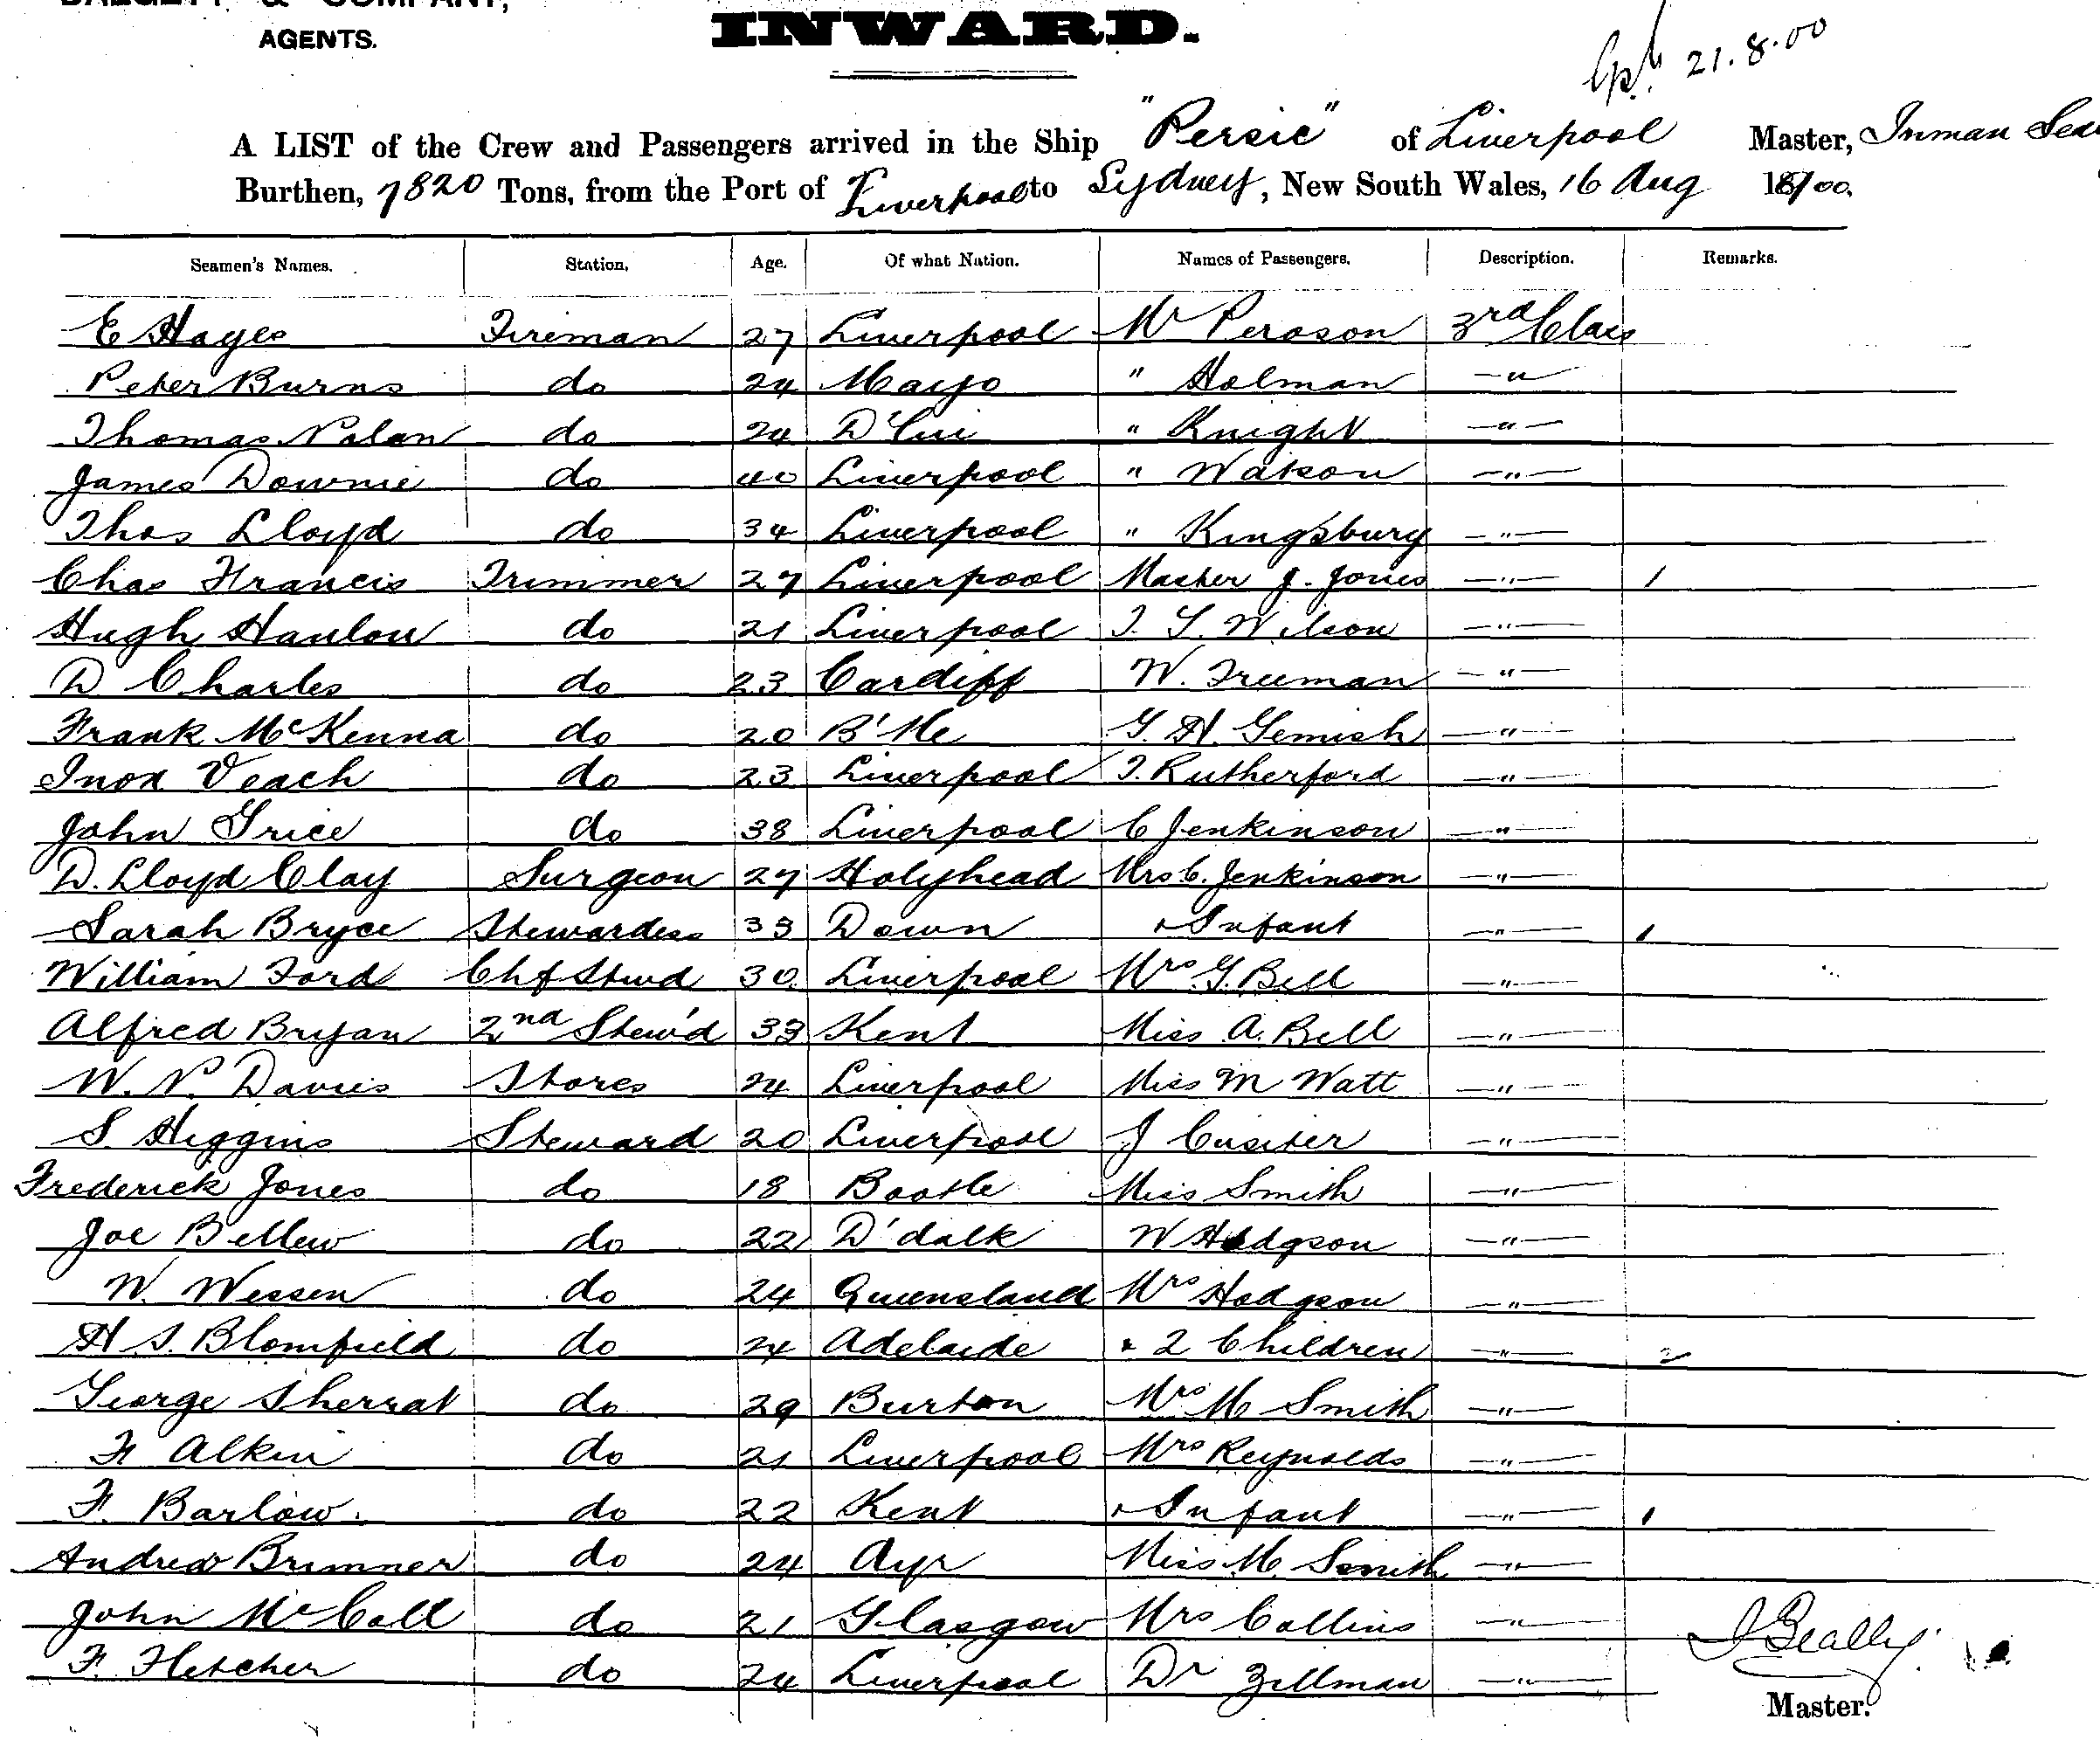 DALGETY & COMPANY,
AGENTS.
INWARD.
21.8.00
A LIST of the Crew and Passengers arrived in the Ship "Persic" of Liverpool Master, Inman Sea
Burthen, 7820 Tons, from the Port of Liverpool to Sydney, New South Wales, 16 Aug 18/00.
Seamen's Names. Station. Age. Of what Nation. Names of Passengers. Description. Remarks.
E Hayes Fireman 27 Liverpool Mr Peroson 3rd Class
Peter Burns do 24 Mayo " Holman -"-
Thomas Nolan do 24 " Knight -"-
James Downie do 40 Liverpool " Watson -"-
Thos Lloyd do 34 Liverpool " Kingsbury -"-
Chas Francis Trimmer 27 Liverpool Master J. Jones -"- 1
Hugh Hanlon do 21 Liverpool T. S. Wilson -"-
D Charles do 23 Cardiff W. Freeman -"-
Frank McKenna do 20 G. H. Gemish -"-
Inox Veach do 23 Liverpool T. Rutherford -"-
John Grice do 38 Liverpool C Jenkinson -"-
D. Lloyd Clay Surgeon 27 Holyhead Mrs C. Jenkinson -"-
Sarah Bryce Stewardess 33 Down + Infant -"- 1
William Ford Chf Stwd 30 Liverpool Mrs G. Bell -"-
Alfred Bryan 2nd Stew'd 33 Kent Miss A. Bell -"-
W. N. Davies Stores 24 Liverpool Miss M Watt -"-
S. Higgins Steward 20 Liverpool J Cusiter -"-
Frederick Jones do 18 Bootle Miss Smith -"-
Joe Bellew do 22 D'dalk W Hodgson -"-
W. Wessen do 24 Queensland Mrs Hodgson -"-
H S. Blomfield do 24 Adelaide + 2 Children -"- 2
George Sherrat do 29 Burton Mrs M Smith -"-
F Alkin do 21 Liverpool Mrs Reynolds -"-
F. Barlow. do 22 Kent + Infant -"- 1
Andrew Brimner do 24 Ayr Miss M. Smith -"-
John McCall do 21 Glasgow Mrs Collins -"-
F. Fletcher do 24 Liverpool Dr Zillman -"-
Master.